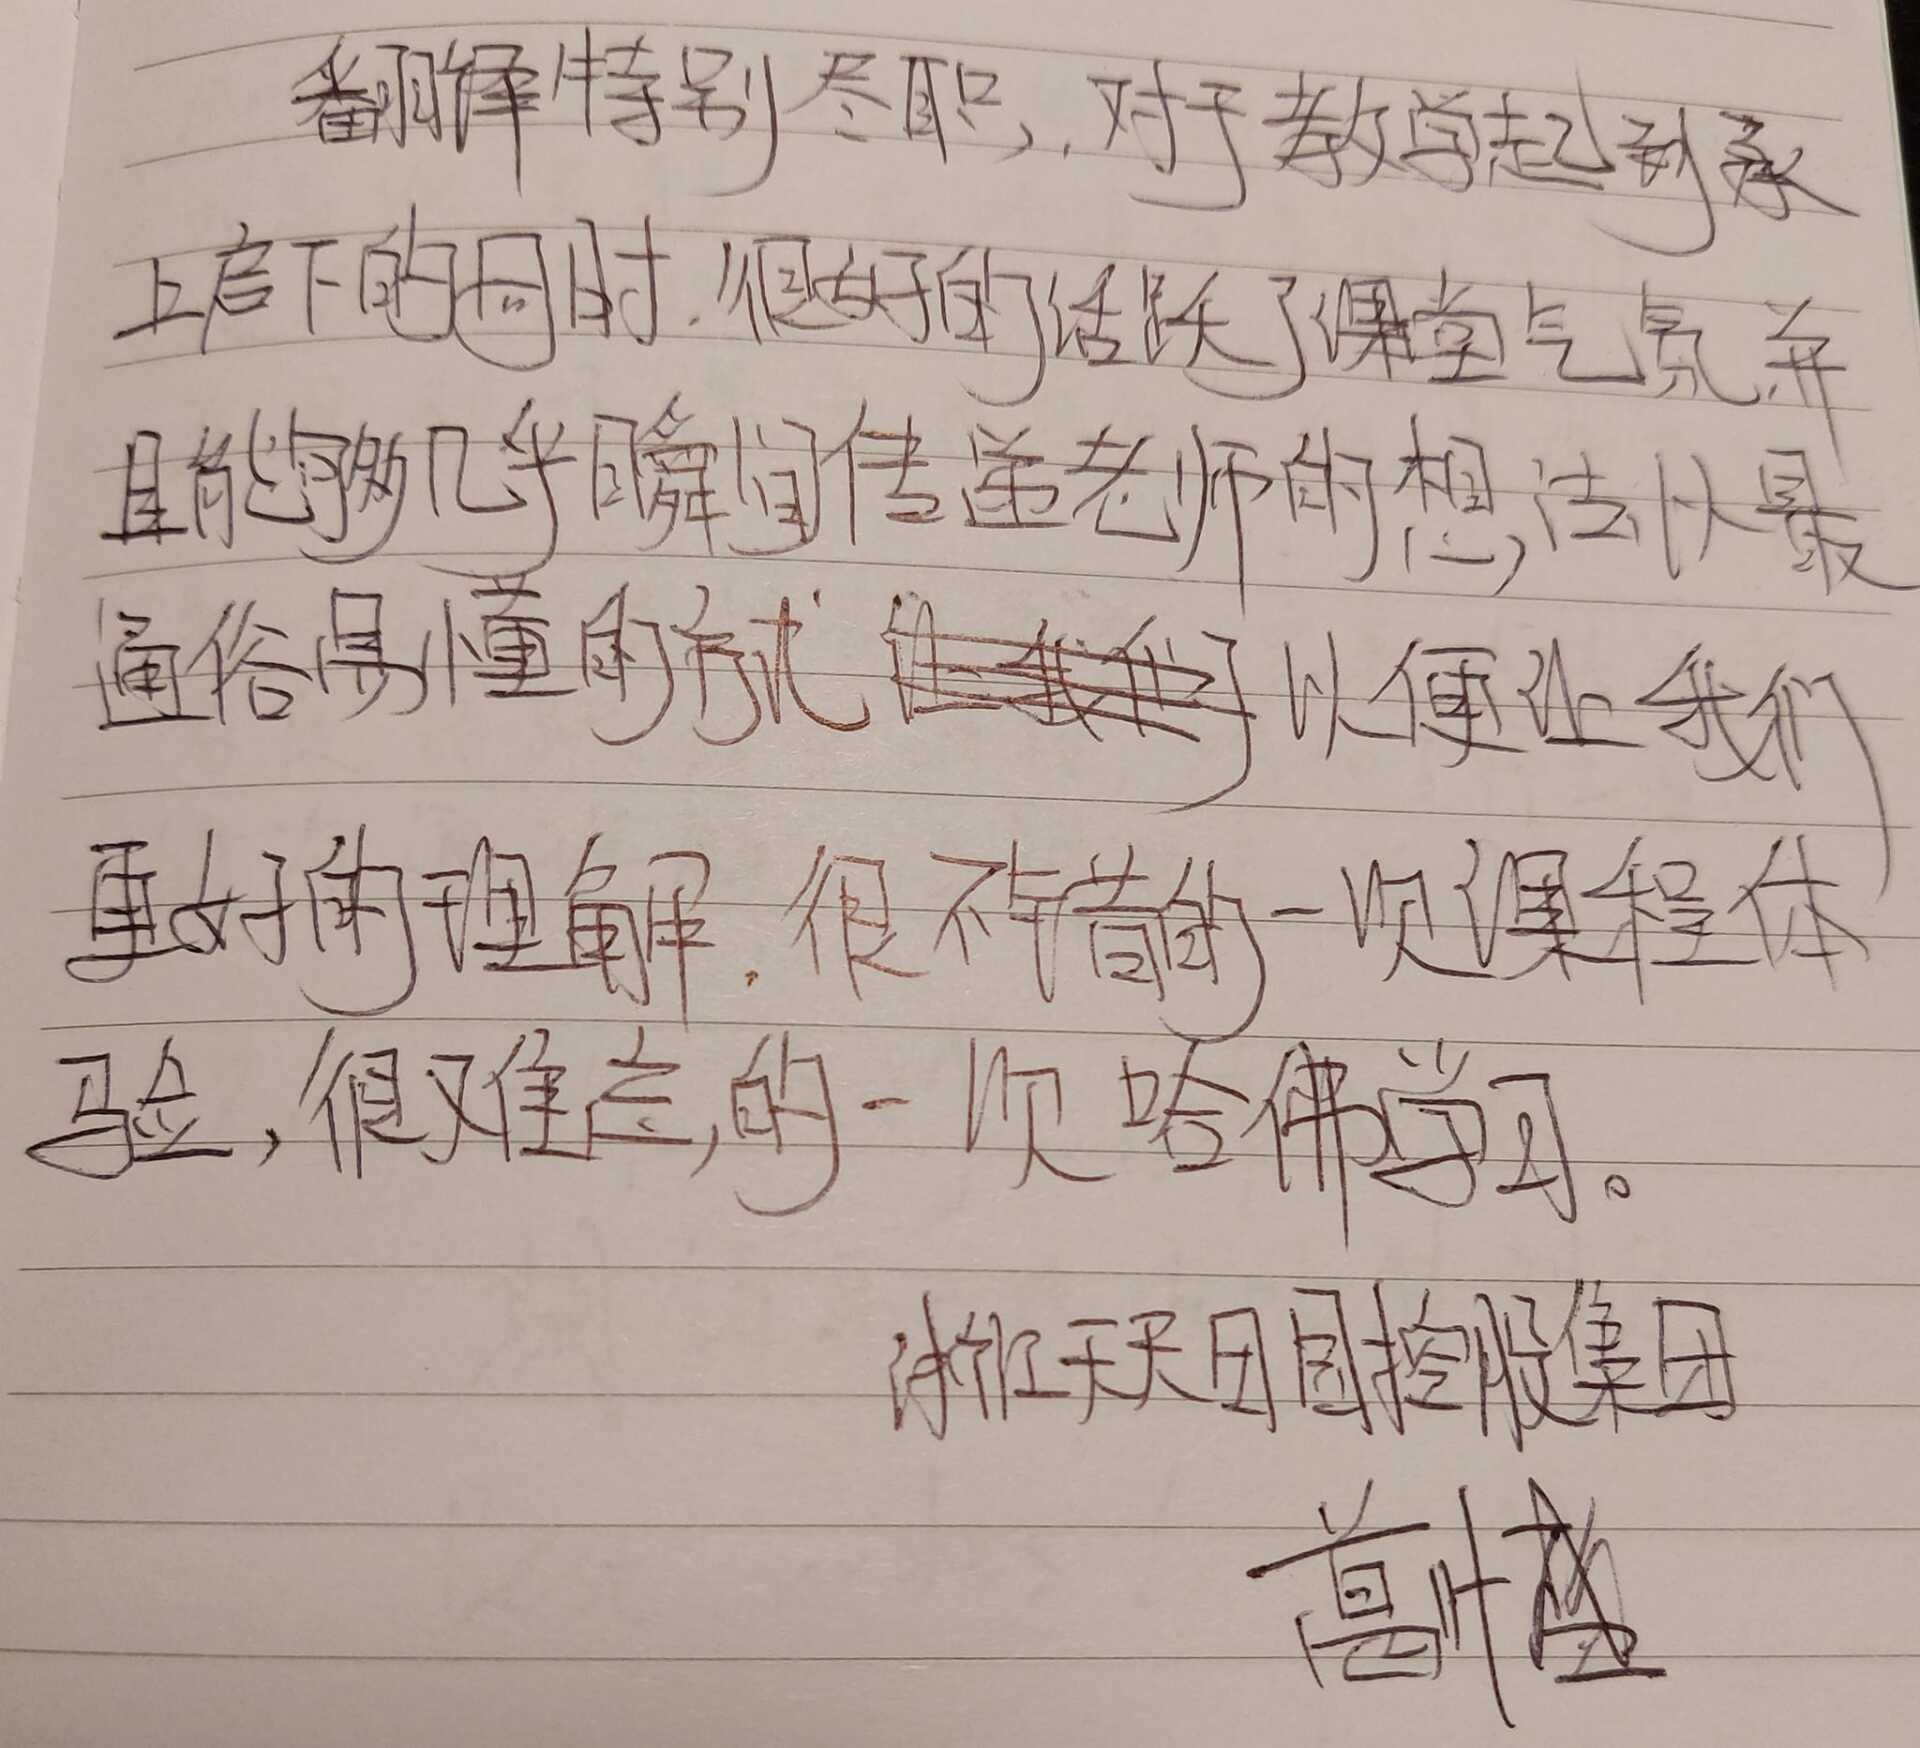 翻译特别尽职,对于教学起到承
上启下的同时.很好的活跃了课堂气氛并
且能够几乎瞬间传递老师的想法以最
通俗易懂的方式 以便让我们
更好的理解.很不错的一次课程体
验,很难忘的一次哈佛学习。
浙江天天田园控股集团